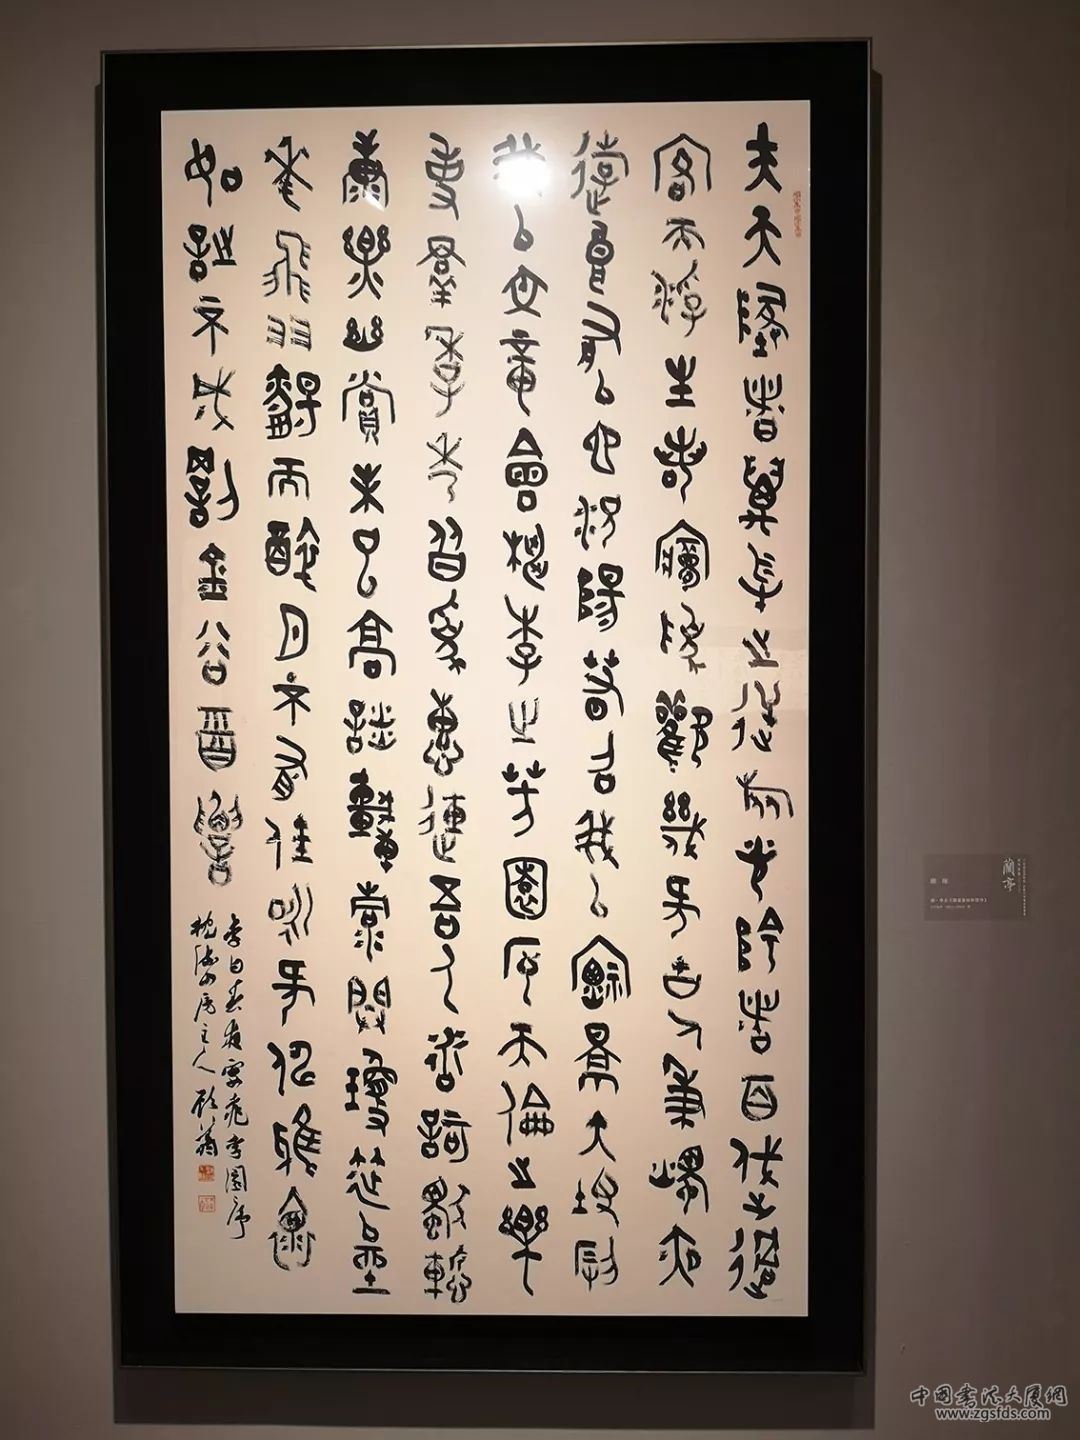 夫天地者萬物之逆旅光陰者百代之過
客而浮生若夢為歡幾乎古人秉燭夜
遊良有以也況陽春召我以煙景大塊假
我以文章會桃李之芳園序天倫之樂
事群季秀皆為惠連吾人歌慚
康樂幽賞未已高談轉開瓊筵以坐
花飛羽觴而醉月不有佳咏乎伸雅懷
如詩不成罰金谷酒數
李白春夜宴桃李園序
枕海山房主人顧
蘭亭
中国书法大厦網
www.zgsfds.com